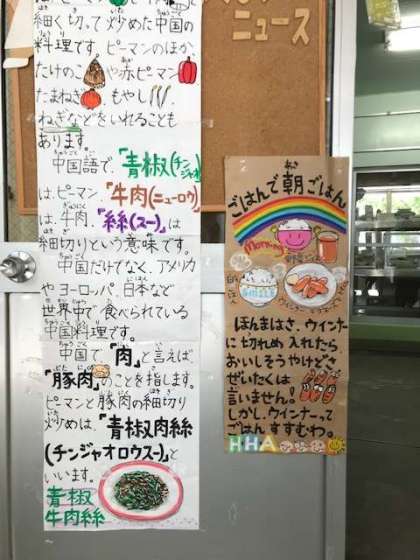 細く切って炒めた中国の
料理です。ピーマンのほか、
たけのこや赤ピーマン
たまねぎ、もやし、
ねぎなどをいれることも
あります。
中国語で、「青椒(チンジャオ)」
は、ピーマン「牛肉(ニューロウ)」
は、牛肉、「絲(スー)」は
細切りという意味です。
中国だけでなく、アメリカ
やヨーロッパ、日本など
世界中で食べられている
中国料理です。
中国で、「肉」と言えば
「豚肉」のことを指します。
ピーマンと豚肉の細切り
炒めは、「青椒肉絲
(チンジャオロウスー)」と
いいます。
青椒
牛肉絲
ニュース
ごはんで朝ごはん
ほんまはさ、ウインナー
に切れめ入れたら
おいしそうやけどさ
ぜいたくは
言いません!
しかし、ウインナーって
ごはんすすむわ。
HHA